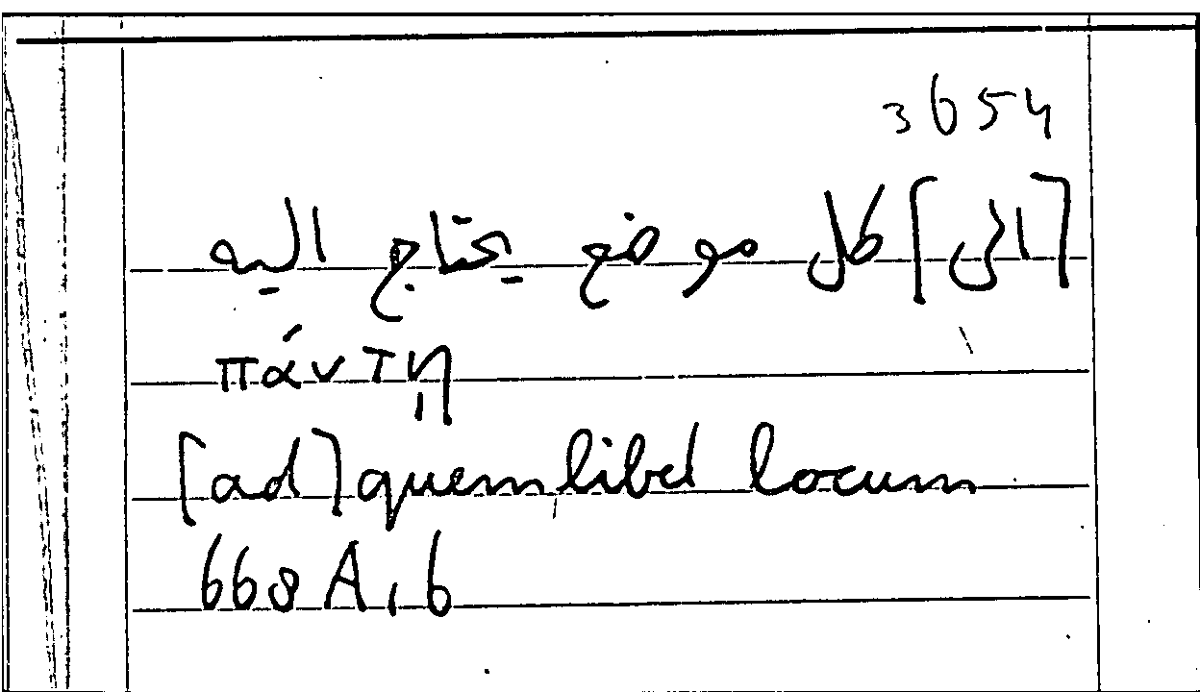 3654
[الى] كل موضع يحتاج اليه
πάντῃ
[ad] quemlibet locum
668 A, 6